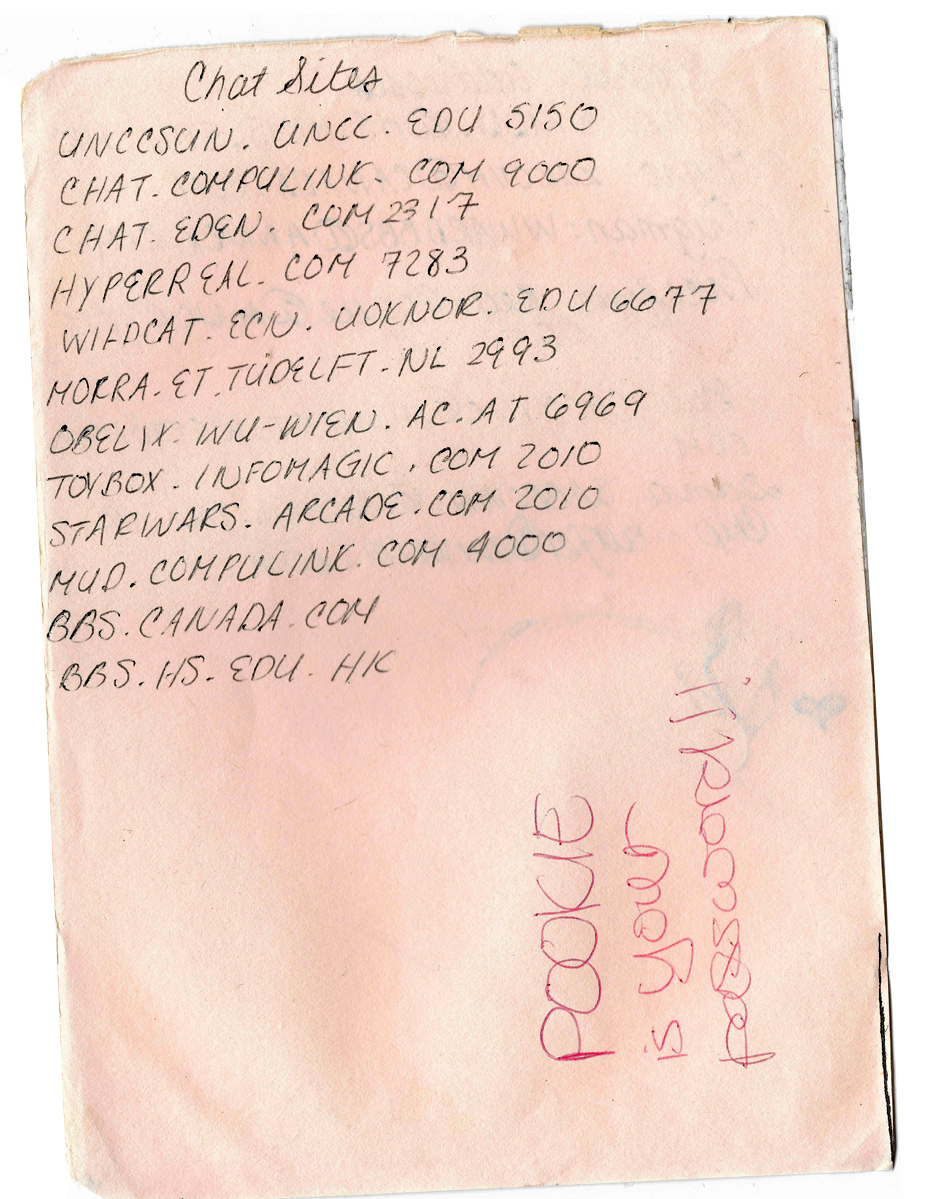 Chat Sites
UNCCSUN. UNCC. EDU 5150
CHAT. COMPULINK. COM 9000
CHAT. EDEN. COM 2317
HYPERREAL. COM 7283
WILDCAT. ECN. UOKNOR. EDU 6677
MORRA. ET. TUDELFT. NL 2993
OBELIX. WU-WIEN. AC. AT 6969
TOYBOX. INFOMAGIC. COM 2010
STARWARS. ARCADE. COM 2010
MUD. COMPULINK. COM 4000
BBS. CANADA. COM
BBS. HS. EDU. HK
POOKIE
is your
password!!.